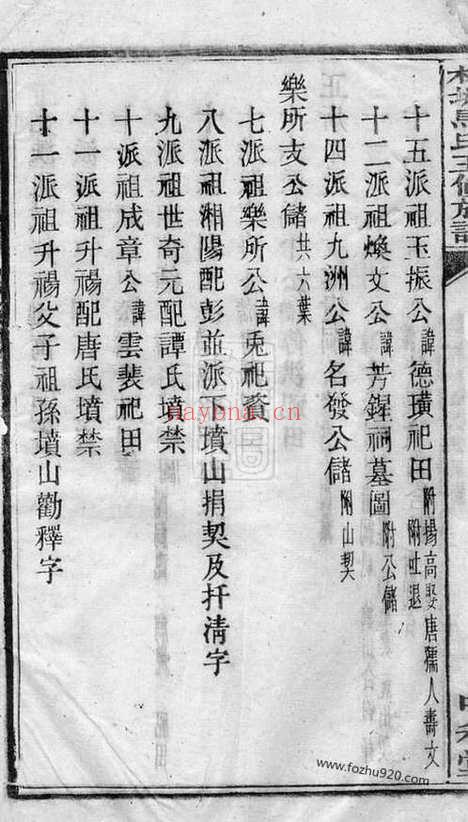 十五派祖玉振公諱德璜祀田附楊高娶唐孺人壽文附吐退
十二派祖煥文公諱芳鍟祠墓圖附公儲
十四派祖九洲公諱名發公儲附山契
樂所支公儲共六葉
七派祖樂所公諱兎祀資
八派祖湘陽配彭並派下墳山捐契及扦清字
九派祖世奇元配譚氏墳禁
十派祖成章公諱雲裴祀田
十一派祖升暘配唐氏墳禁
十一派祖升暘父子祖孫墳山勸釋字
haybna.cn
www.fozhu920.com